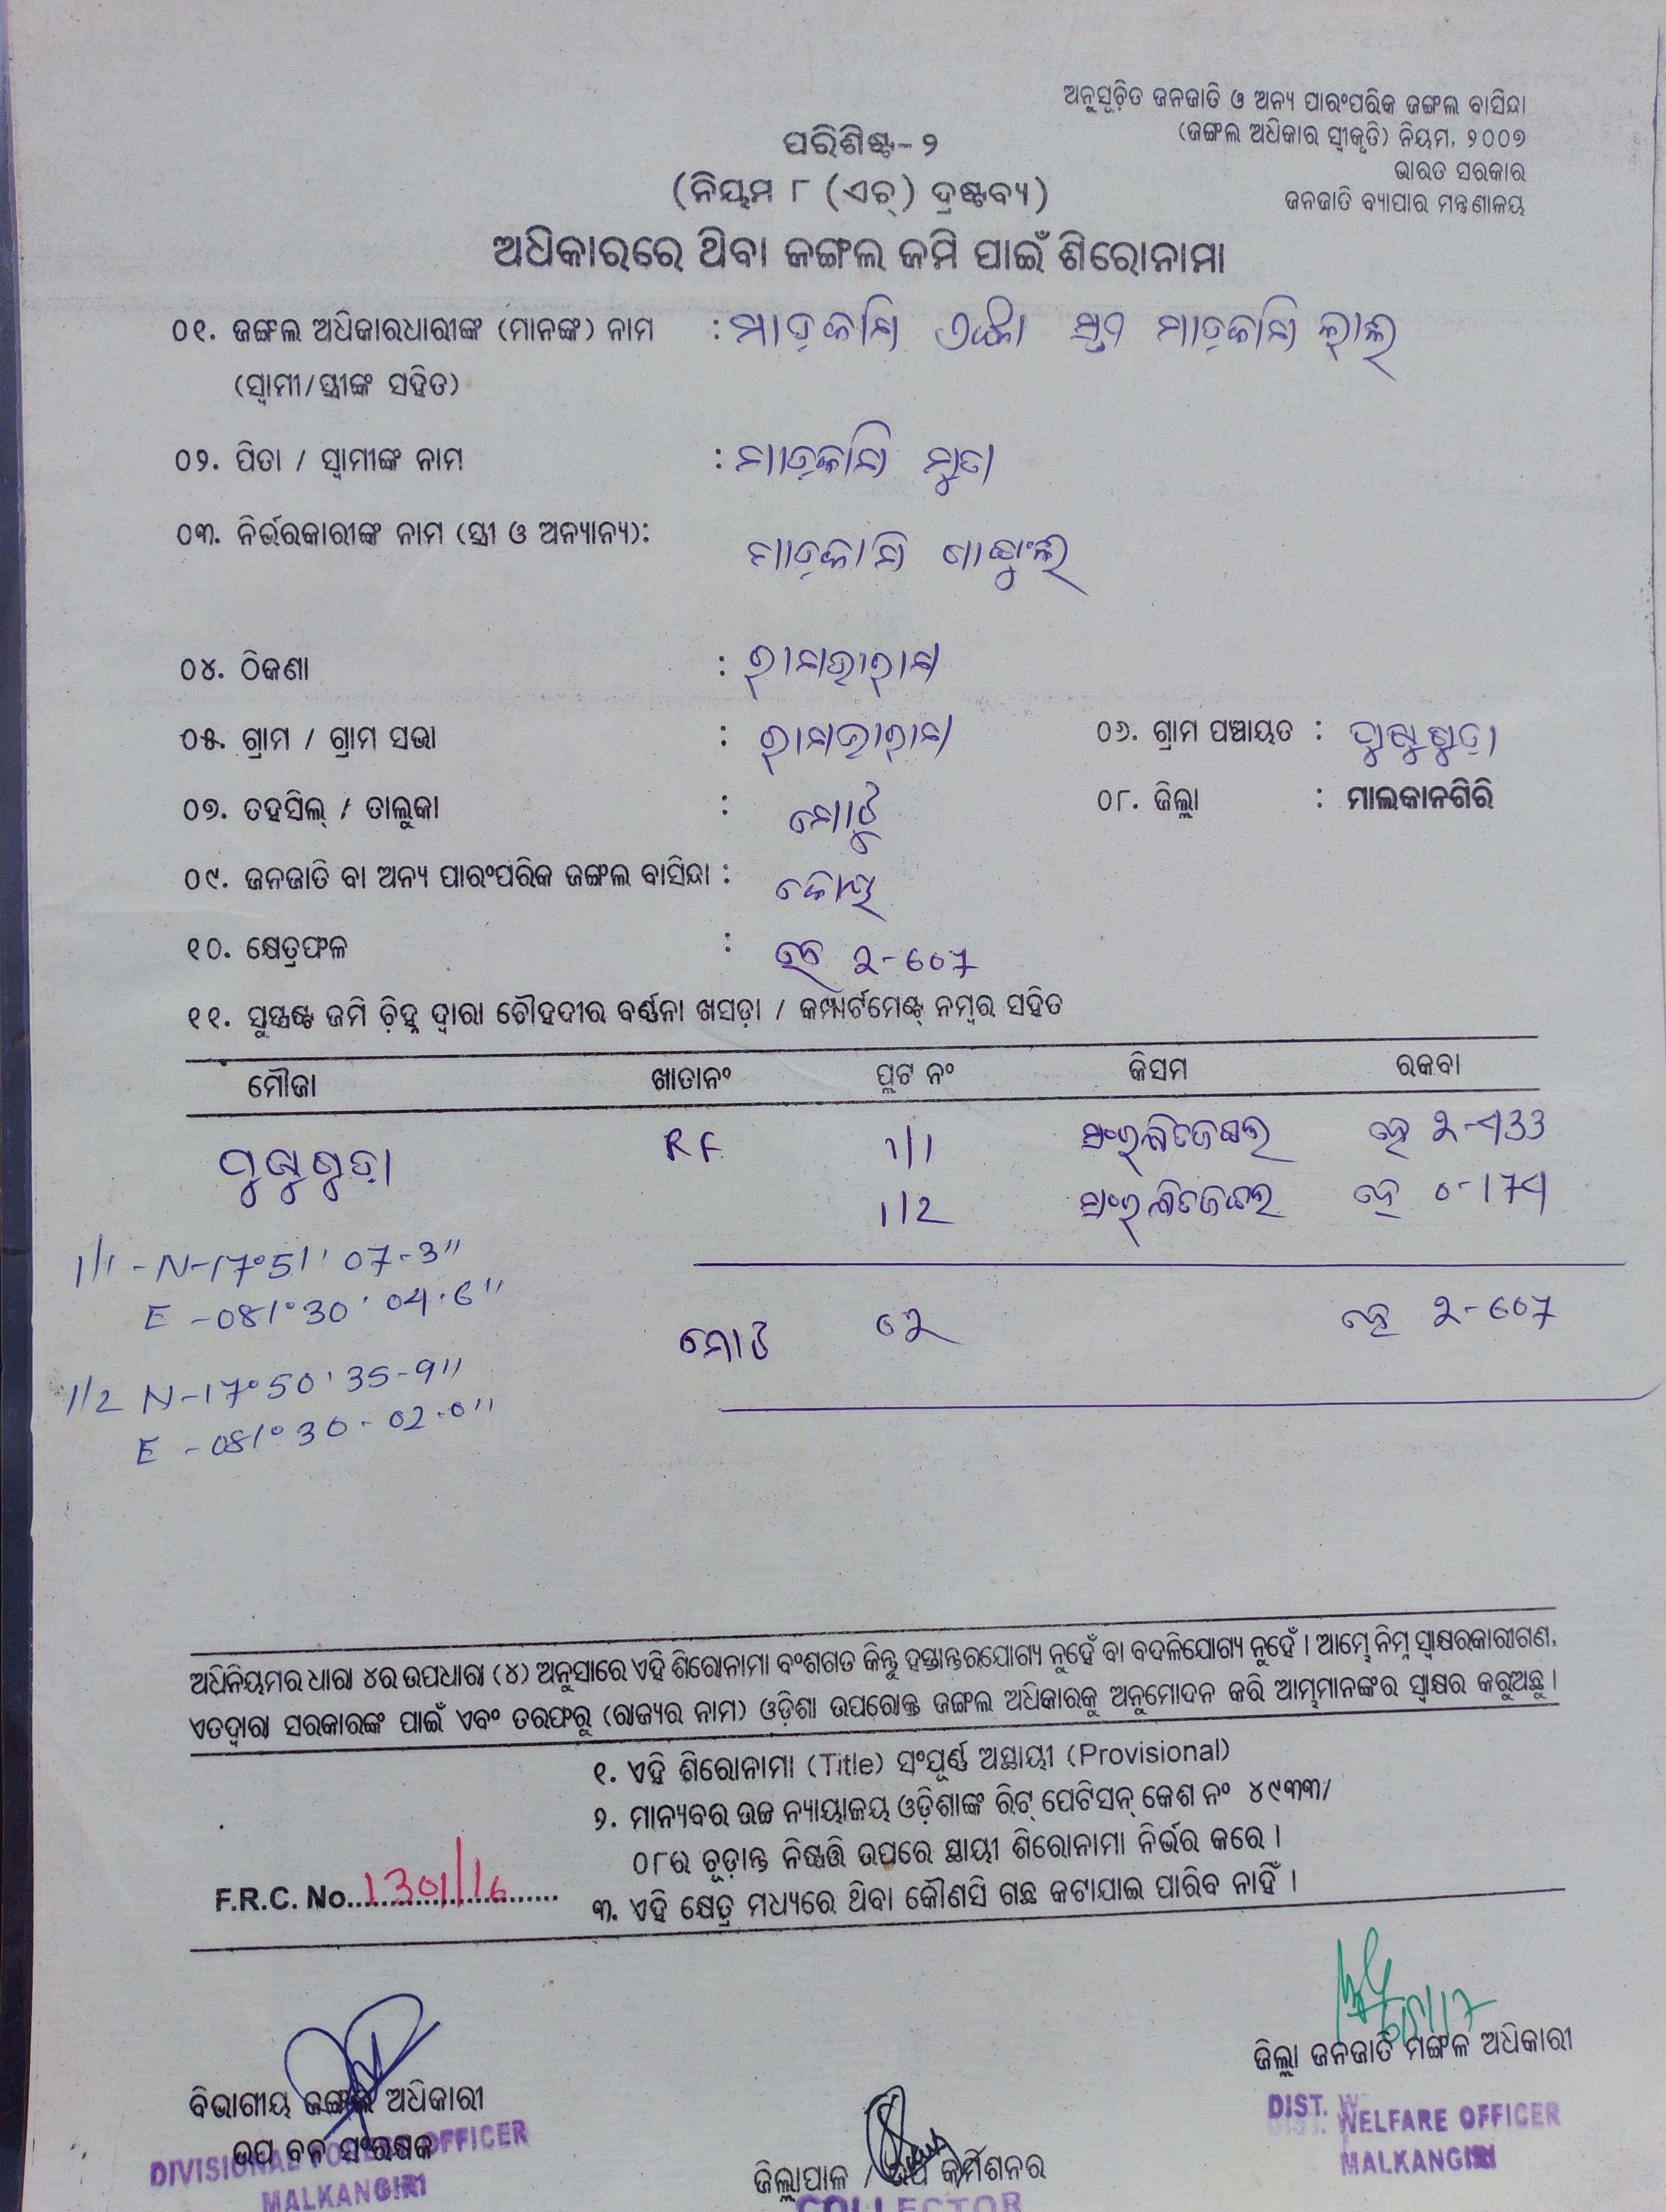 ଅନୁସୂଚିତ ଜନଜାତି ଓ ଅନ୍ୟ ପାରଂପରିକ ଜଙ୍ଗଲ ବାସିନ୍ଦା
(ଜଙ୍ଗଲ ଅଧିକାର ସ୍ୱୀକୃତି) ନିୟମ, ୨୦୦୭
ଭାରତ ସରକାର
ଜନଜାତି ବ୍ୟାପାର ମନ୍ତ୍ରଣାଳୟ
ପରିଶିଷ୍ଟ-୨
(ନିୟମ ୮ (ଏଚ୍) ଦ୍ରଷ୍ଟବ୍ୟ)
ଅଧିକାରରେ ଥିବା ଜଙ୍ଗଲ ଜମି ପାଇଁ ଶିରୋନାମା
୦୧. ଜଙ୍ଗଲ ଅଧିକାରଧାରୀଙ୍କ (ମାନଙ୍କ) ନାମ : ମାଡ଼କାମି
(ସ୍ୱାମୀ/ସ୍ତ୍ରୀଙ୍କ ସହିତ)
୦୨. ପିତା / ସ୍ୱାମୀଙ୍କ ନାମ : ମାଡ଼କାମି ମୁତା
୦୩. ନିର୍ଭରକାରୀଙ୍କ ନାମ (ସ୍ତ୍ରୀ ଓ ଅନ୍ୟାନ୍ୟ): ମାଡ଼କାମି
୦୪. ଠିକଣା :
୦୫. ଗ୍ରାମ / ଗ୍ରାମ ସଭା : ୦୬. ଗ୍ରାମ ପଞ୍ଚାୟତ :
୦୭. ତହସିଲ୍ / ତାଲୁକା : ମୋଟୁ ୦୮. ଜିଲ୍ଲା : ମାଲକାନଗିରି
୦୯. ଜନଜାତି ବା ଅନ୍ୟ ପାରଂପରିକ ଜଙ୍ଗଲ ବାସିନ୍ଦା : କୋୟା
୧୦. କ୍ଷେତ୍ରଫଳ : ହେ 2-607
୧୧. ସୁସ୍ପଷ୍ଟ ଜମି ଚିହ୍ନ ଦ୍ୱାରା ଚୌହଦୀର ବର୍ଣ୍ଣନା ଖସଡ଼ା / କମ୍ପାର୍ଟମେଣ୍ଟ୍ ନମ୍ବର ସହିତ
ମୌଜା ଖାତାନଂ ପ୍ଲଟ ନଂ କିସମ ରକବା
RF 1/1 ସଂରକ୍ଷିତ ଜଙ୍ଗଲ ହେ 2-433
1/2 ସଂରକ୍ଷିତ ଜଙ୍ଗଲ ହେ 0-174
1/1 - N-17°51' 07-3"
E -081°30' 04.6"
ମୋଟ 02 ହେ 2-607
1/2 N-17°50' 35-9"
E -081°30- 02.0"
ଅଧିନିୟମର ଧାରା ୪ର ଉପଧାରା (୪) ଅନୁସାରେ ଏହି ଶିରୋନାମା ବଂଶଗତ କିନ୍ତୁ ହସ୍ତାନ୍ତରଯୋଗ୍ୟ ନୁହେଁ ବା ବଦଳିଯୋଗ୍ୟ ନୁହେଁ । ଆମ୍ଭେ ନିମ୍ନ ସ୍ୱାକ୍ଷରକାରୀଗଣ,
ଏତଦ୍ୱାରା ସରକାରଙ୍କ ପାଇଁ ଏବଂ ତରଫରୁ (ରାଜ୍ୟର ନାମ) ଓଡ଼ିଶା ଉପରୋକ୍ତ ଜଙ୍ଗଲ ଅଧିକାରକୁ ଅନୁମୋଦନ କରି ଆମ୍ଭମାନଙ୍କର ସ୍ୱାକ୍ଷର କରୁଅଛୁ ।
୧. ଏହି ଶିରୋନାମା (Title) ସଂପୂର୍ଣ୍ଣ ଅସ୍ଥାୟୀ (Provisional)
୨. ମାନ୍ୟବର ଉଚ୍ଚ ନ୍ୟାୟାଳୟ ଓଡ଼ିଶାଙ୍କ ରିଟ୍ ପେଟିସନ୍ କେଶ ନଂ ୪୯୩୩/
୦୮ର ଚୂଡ଼ାନ୍ତ ନିଷ୍ପତ୍ତି ଉପରେ ସ୍ଥାୟୀ ଶିରୋନାମା ନିର୍ଭର କରେ ।
F.R.C. No. 1301/16
୩. ଏହି କ୍ଷେତ୍ର ମଧ୍ୟରେ ଥିବା କୌଣସି ଗଛ କଟାଯାଇ ପାରିବ ନାହିଁ ।
ଜିଲ୍ଲା ଜନଜାତି ମଙ୍ଗଳ ଅଧିକାରୀ
DIST. WELFARE OFFICER
MALKANGIRI
ବିଭାଗୀୟ ଜଙ୍ଗଲ ଅଧିକାରୀ
ଉପ ବନ ସଂରକ୍ଷକ
DIVISIONAL FOREST OFFICER
MALKANGIRI
ଜିଲ୍ଲାପାଳ / ଉପ କମିଶନର
COLLECTOR